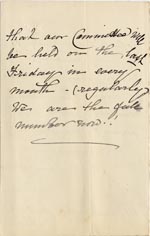 that our Committee will
be held on the last
Friday in every
month - (regularly)
We are the full
number now!